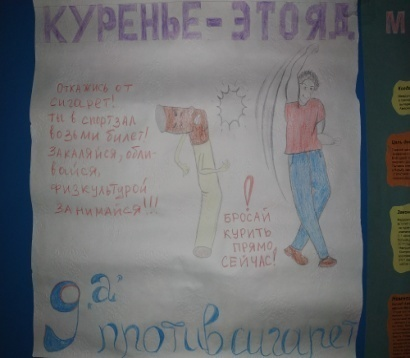 КУРЕНЬЕ - ЭТО ЯД
Откажись от
сигарет!
ты в спортзал
возьми билет!
Закаляйся, обли-
вайся,
физкультурой
занимайся!!!
!
БРОСАЙ
КУРИТЬ
ПРЯМО
СЕЙЧАС!
9"а"
против сигарет
М